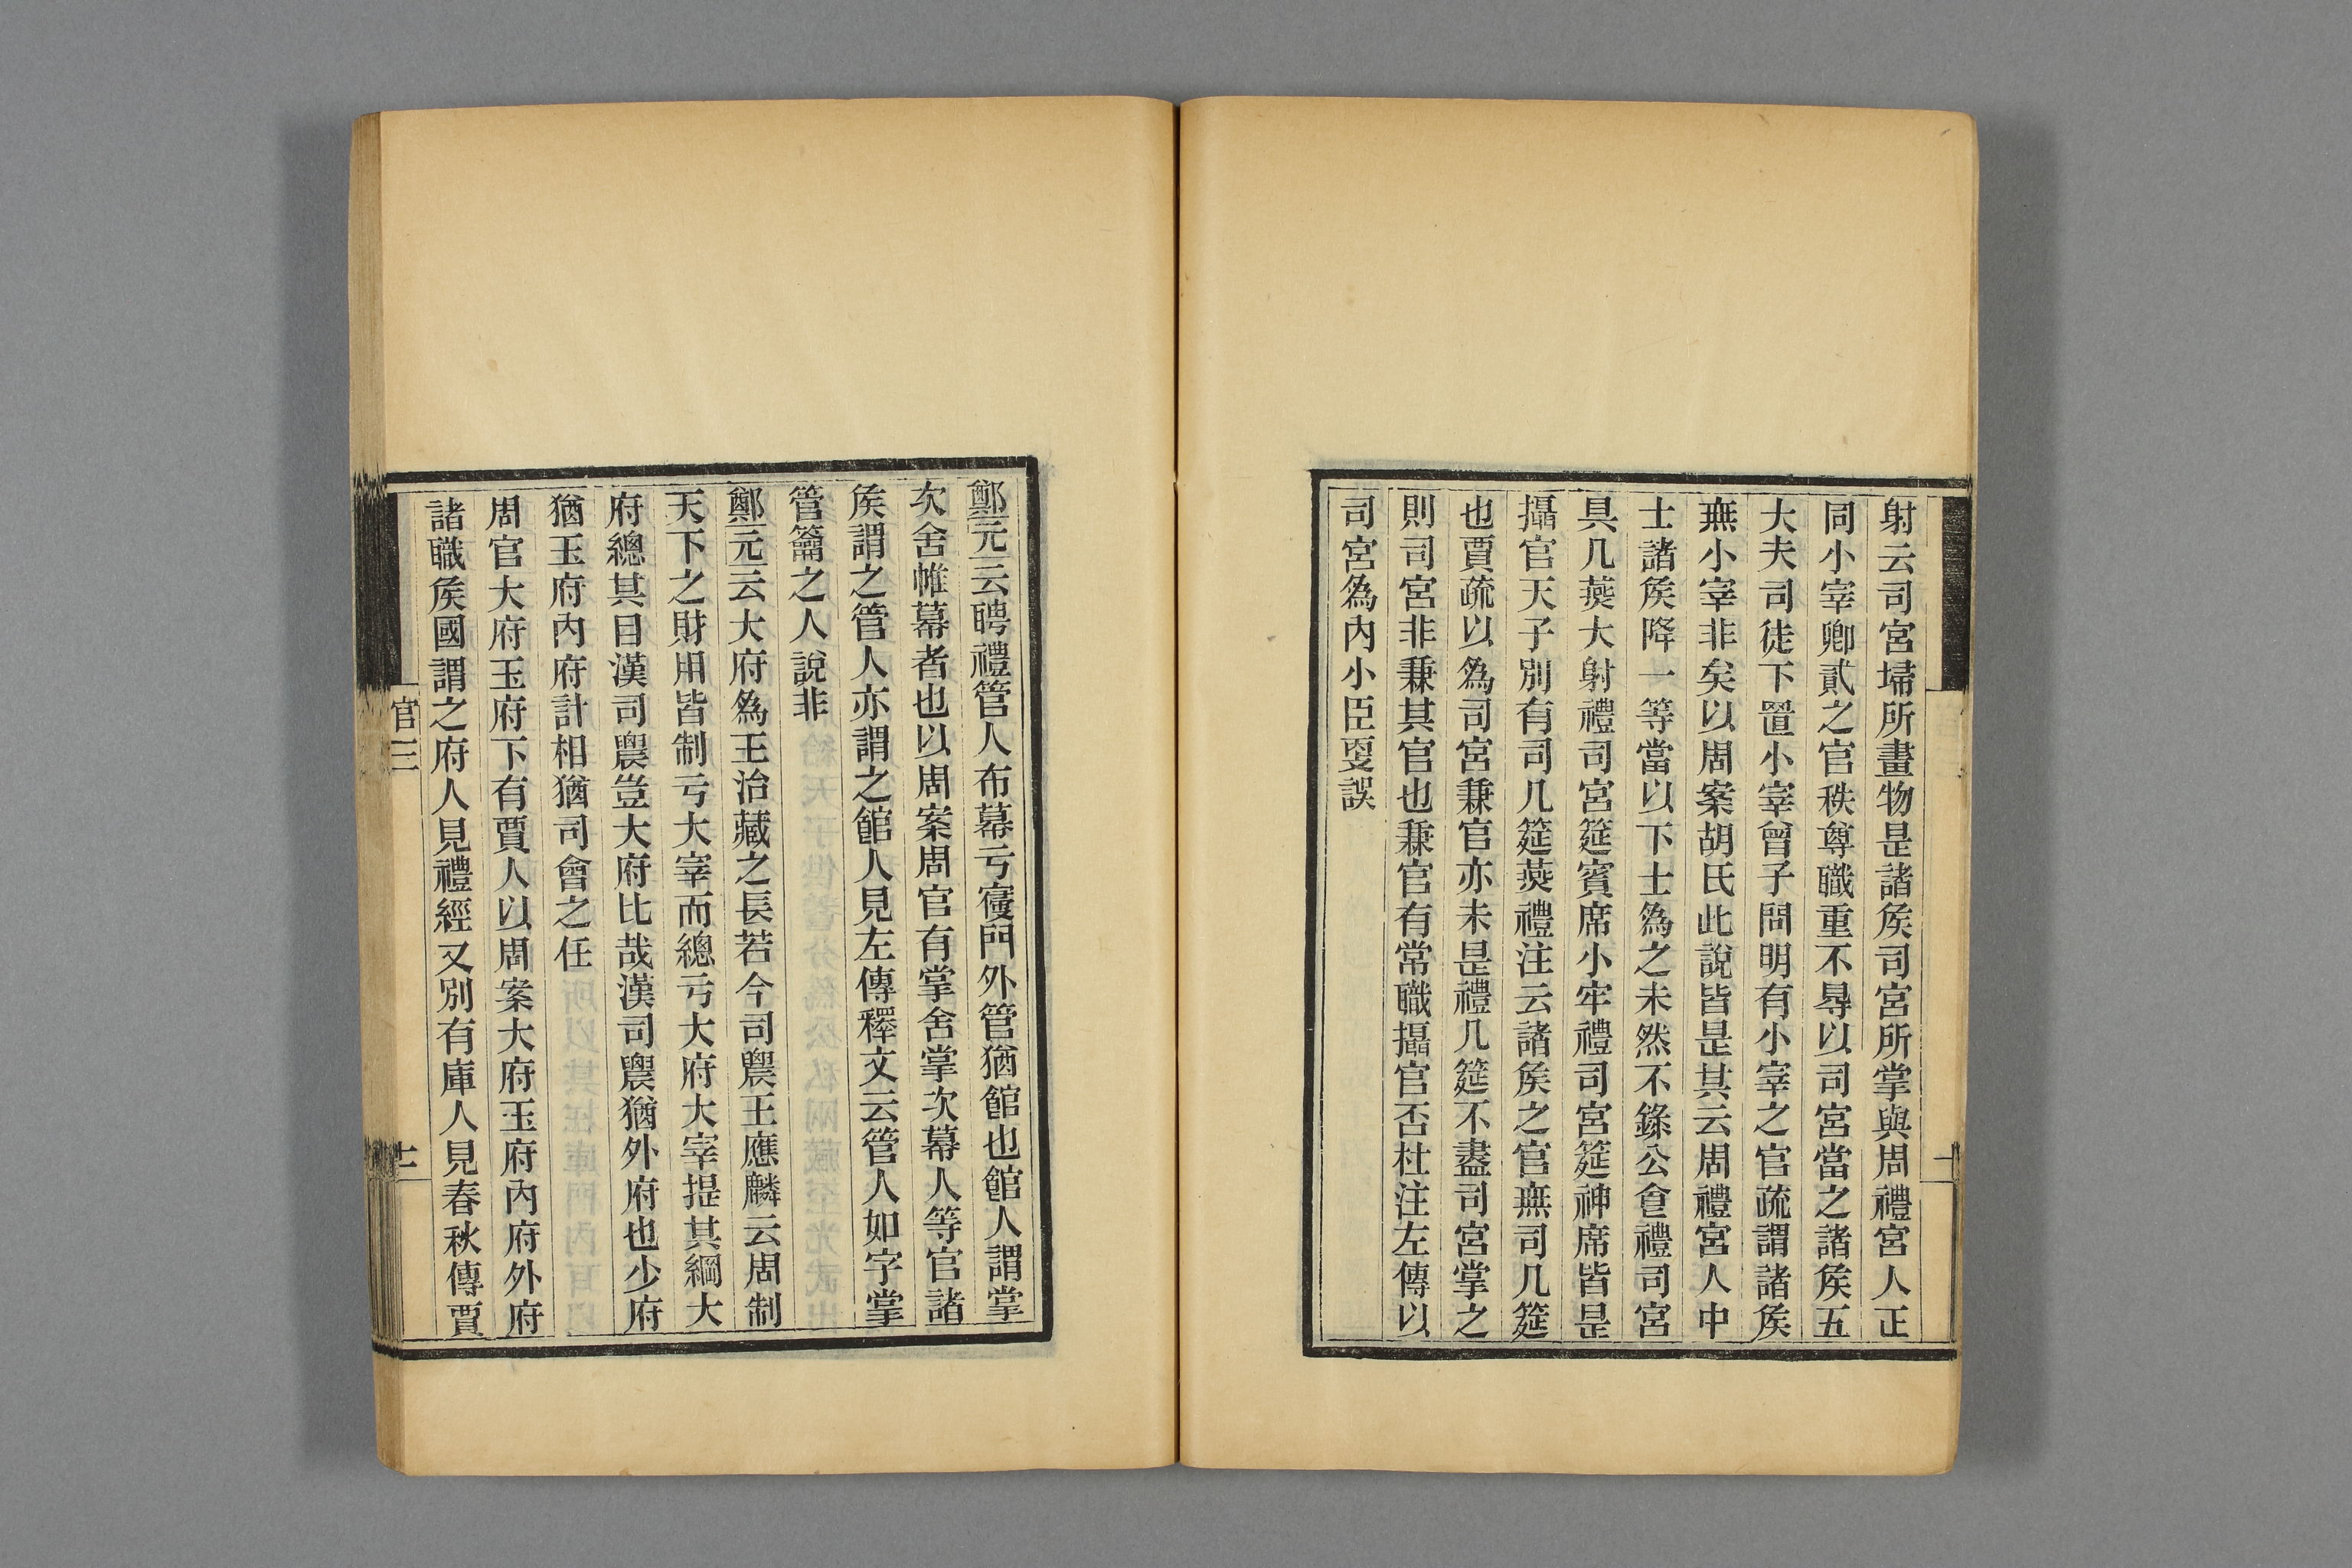 射云司宮埽所畫物是諸矦司宮所掌與周禮宮人正
同小宰卿貳之官秩尊職重不㝵以司宮當之諸矦五
大夫司徒下置小宰曾子問明有小宰之官疏謂諸矦
無小宰非矣以周案胡氏此說皆是其云周禮宮人中
士諸矦降一等當以下士為之未然不錄公食禮司宮
具几燕大射禮司宮筵賓席小牢禮司宮筵神席皆是
攝官天子別有司几筵燕禮注云諸矦之官無司几筵
也賈疏以為司宮兼官亦未是禮几筵不盡司宮掌之
則司宮非兼其官也兼官有常職攝官否杜注左傳以
司宮為內小臣㪅誤
鄭元云聘禮管人布幕亏寑門外管猶館也館人謂掌
次舍帷幕者也以周案周官有掌舍掌次幕人等官諸
矦謂之管人亦謂之館人見左傳釋文云管人如字掌
管籥之人說非
鄭元云大府為王治藏之長若今司農王應麟云周制
天下之財用皆制亏大宰而總亏大府大宰提其綱大
府總其目漢司農豈大府比哉漢司農猶外府也少府
猶玉府內府計相猶司會之任
周官大府玉府下有賈人以周案大府玉府內府外府
諸職矦國謂之府人見禮經又別有庫人見春秋傳賈
官三